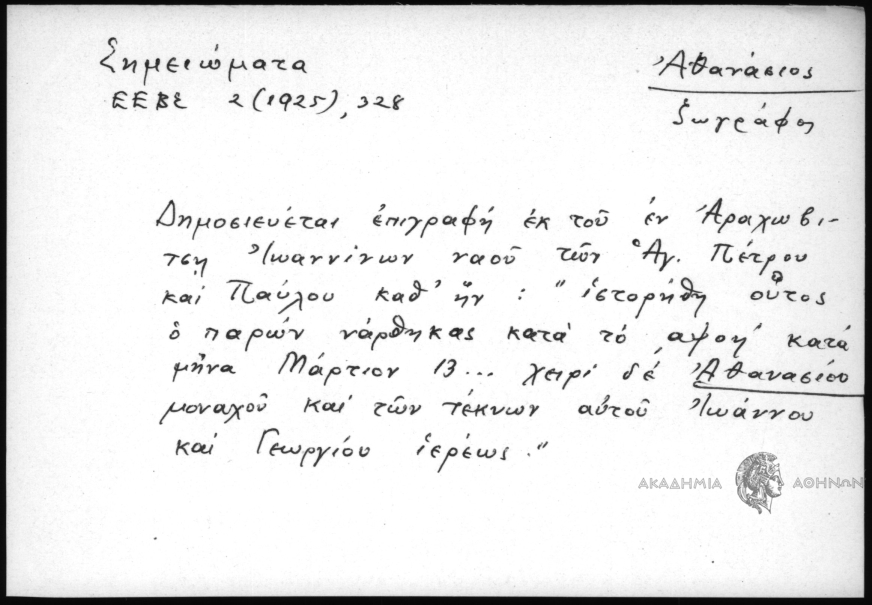 Σημειώματα
ΕΕΒΣ 2 (1925), 328
Ἀθανάσιος
ζωγράφος
Δημοσιεύεται ἐπιγραφή ἐκ τοῦ ἐν Ἀραχωβι-
τση Ἰωαννίνων ναοῦ τῶν Ἁγ. Πέτρου
καί Παύλου καθ' ἥν : "ἱστορήθη οὗτος
ὁ παρών νάρθηκας κατά τό ͵αψοη΄ κατά
μῆνα Μάρτιον 13... χειρί δέ Ἀθανασίου
μοναχοῦ καί τῶν τέκνων αὐτοῦ Ἰωάννου
καί Γεωργίου ἱερέως."
ΑΚΑΔΗΜΙΑ ΑΘΗΝΩΝ